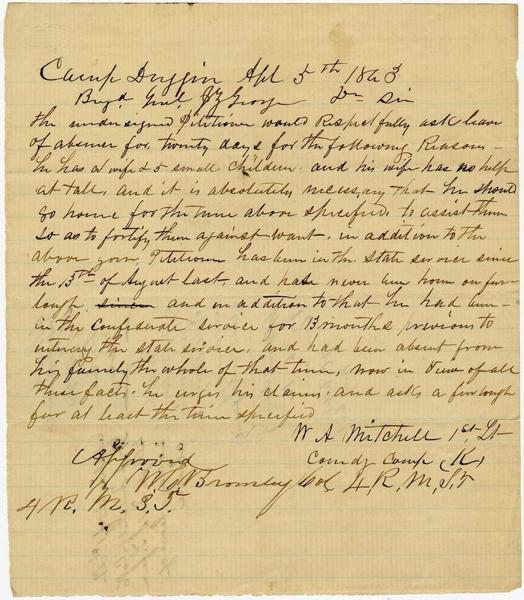 Camp Duggin Apl 5th 1863
Brigd Genl JZ George Dr Sir
the undersigned Petitioner would Respectfully ask leave
of absence for twenty days for the following Reasons -
he has a wife & 5 small children and his wife has no help
at tall, and it is absolutely necessary that he should
go home for the time above specified, to assist them
so as to fortify them against want, in addition to the
above your Petitioner has been in the state service since
the 13th of August last and has never been home on fur
lough since and in addition to that he had been
in the Confederate service for 13 months previous to
entering the state service, and had been absent from
his family the whole of that time, now in view of all
these facts, he urges his claims, and asks a furlough
for at least the time specified
W A Mitchell 1st Lt
Comdg Comp (K)
Approved
Col 4 R, M, S, T
4 R. M. S. T.